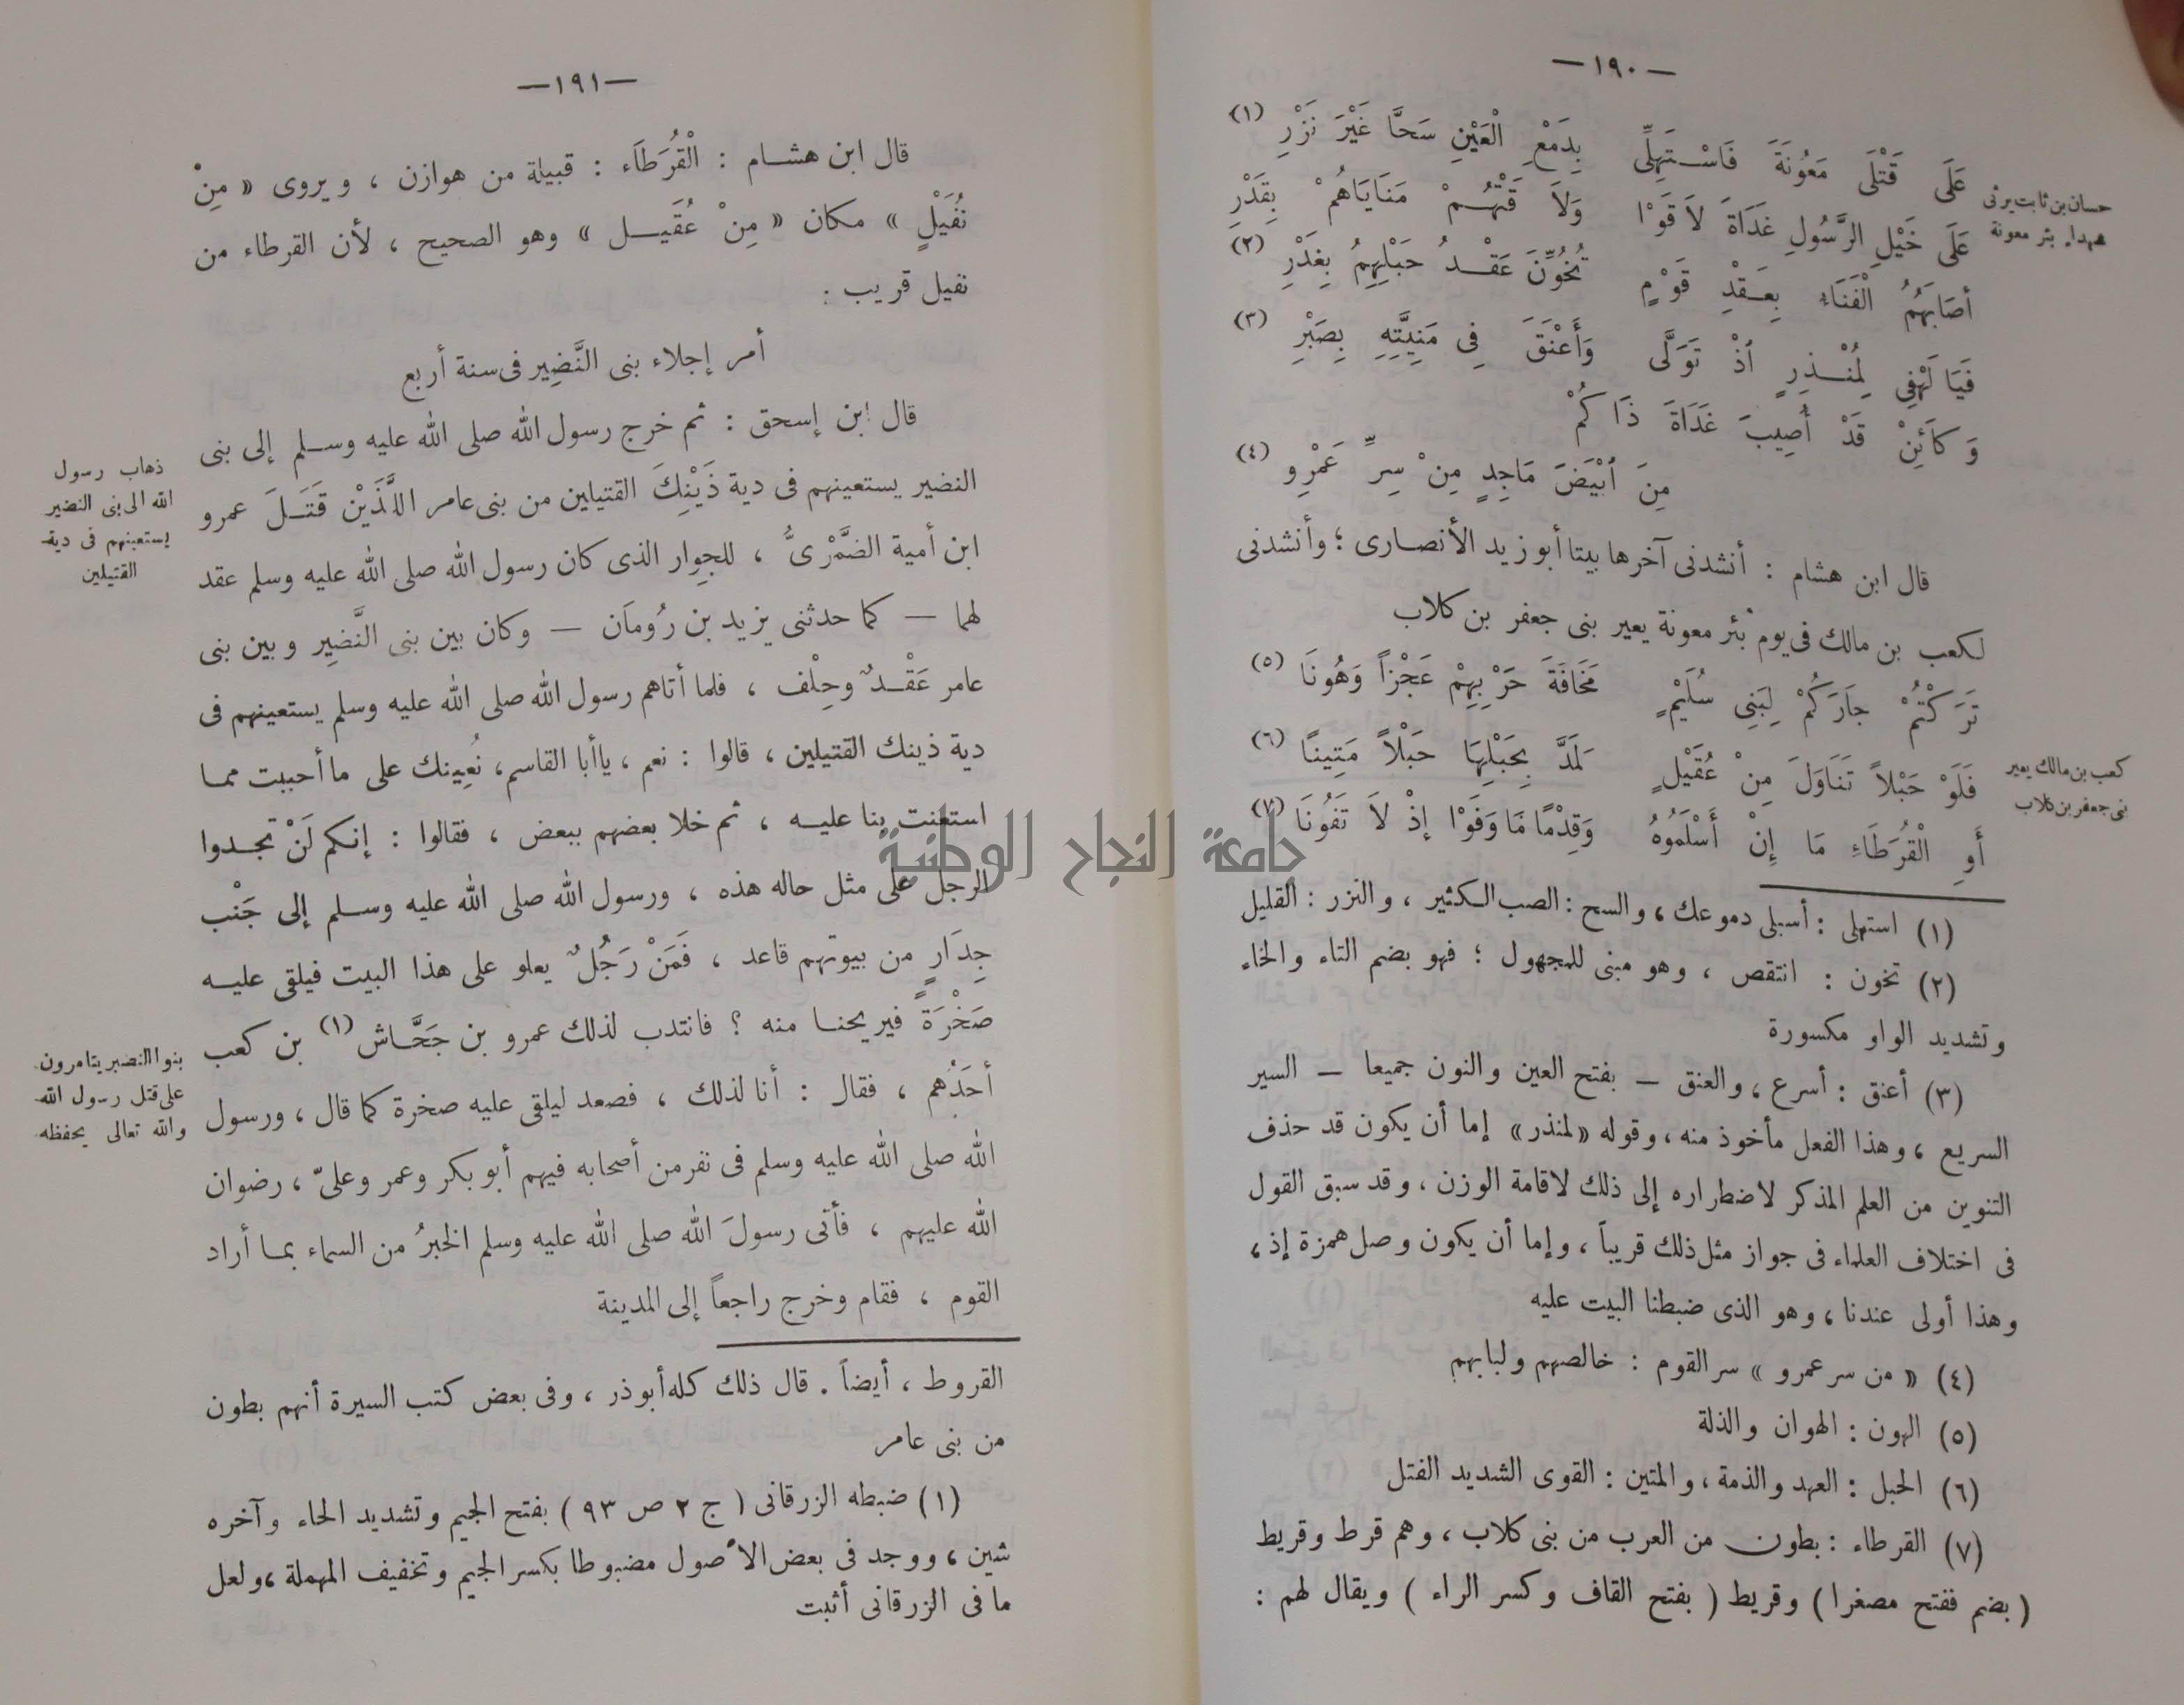 —١٩٠—
عَلَى قَتْلَى مَعُونَةَ فَاسْتَهِلِّى بِدَمْعِ الْعَيْنِ سَحًّا غَيْرَ نَزْرِ (١)
عَلَى خَيْلِ الرَّسُولِ غَدَاةَ لَاقَوْا وَلَاقَتْهُمْ مَنَايَاهُمْ بِقَدْرِ
أصَابَهُمُ الْفَنَاءُ بِعَقْدِ قَوْمٍ تُخُوِّنَ عَقْدُ حَبْلِهِمُ بِغَدْرِ (٢)
فَيَا لَهْفِى لِمُنْذِرٍ اذْ تَوَلَّى وَأَعْنَقَ فِى مَنِيَّتِهِ بِصَبْرِ (٣)
وَكَأَئِنْ قَدْ أُصِيبَ غَدَاةَ ذَاكُمْ
مِنَ ابْيَضَ مَاجِدٍ مِنْ سِرِّ عَمْرِو (٤)
قال ابن هشام : أنشدنى آخرها بيتا أبو زيد الأنصارى ؛ وأنشدنى
لكعب بن مالك فى يوم بئر معونة يعير بنى جعفر بن كلاب
تَرَكْتُمْ جَارَكُمْ لِبَنِى سُلَيْمٍ مَخَافَةَ حَرْبِهِمْ عَجْزاً وَهُونَا (٥)
فَلَوْ حَبْلاً تَنَاوَلَ مِنْ عُقَيْلٍ لَمَدَّ بِحَبْلِهَا حَبْلاً مَتِينًا (٦)
أَوِ الْقُرَطَاءِ مَا إِنْ أَسْلَمُوهُ وَقِدْمًا مَا وَفَوْا إِذْ لاَ تَفُونَا (٧)
حسان بن ثابت يرثى
شهداء بئر معونة
كعب بن مالك يعير
بنى جعفر بن كلاب
(١) استهلى : أسبلى دموعك ، والسح : الصب الكثير ، والنزر : القليل
(٢) تخون : انتقص ، وهو مبنى للمجهول ؛ فهو بضم التاء والخاء
وتشديد الواو مكسورة
(٣) أعنق : أسرع ، والعنق — بفتح العين والنون جميعا — السير
السريع ، وهذا الفعل مأخوذ منه ، وقوله «لمنذر» إما أن يكون قد حذف
التنوين من العلم المذكر لاضطراره إلى ذلك لاقامة الوزن ، وقد سبق القول
فى اختلاف العلماء فى جواز مثل ذلك قريباً ، وإما أن يكون وصل همزة إذ ،
وهذا أولى عندنا ، وهو الذى ضبطنا البيت عليه
(٤) « من سر عمرو » سر القوم : خالصهم ولبابهم
(٥) الهون : الهوان والذلة
(٦) الحبل : العهد والذمة ، والمتين : القوى الشديد الفتل
(٧) القرطاء : بطون من العرب من بنى كلاب ، وهم قرط وقريط
( بضم ففتح مصغرا ) وقريط ( بفتح القاف وكسر الراء ) ويقال لهم :
—١٩١—
قال ابن هشام : الْقُرَطَاء : قبيلة من هوازن ، ويروى « مِنْ
نُفَيْلٍ » مكان « مِنْ عُقَيل » وهو الصحيح ، لأن القرطاء من
نفيل قريب :
أمر إجلاء بنى النَّضِير فى سنة أربع
قال ابن إسحق : ثم خرج رسول الله صلى الله عليه وسلم إلى بنى
النضير يستعينهم فى دية ذَيْنِكَ القتيلين من بنى عامر اللَّذَيْن قَتَلَ عمرو
ابن أمية الضَّمْرىُّ ، للجِوار الذى كان رسول الله صلى الله عليه وسلم عقد
لهما — كما حدثنى يزيد بن رُومَان — وكان بين بنى النَّضِير وبين بنى
عامر عَقْدٌ وحِلْف ، فلما أتاهم رسول الله صلى الله عليه وسلم يستعينهم فى
دية ذينك القتيلين ، قالوا : نعم ، ياأبا القاسم ، نُعِينك على ما أحببت مما
استعنت بنا عليه ، ثم خلا بعضهم ببعض ، فقالوا : إنكم لَنْ تجدوا
الرجل على مثل حاله هذه ، ورسول الله صلى الله عليه وسلم إلى جَنْب
جِدَارٍ من بيوتهم قاعد ، فَمَنْ رَجُلٌ يعلو على هذا البيت فيلقى عليه
صَخْرَةً فيريحنا منه ؟ فانتدب لذلك عمرو بن جَحَّاش (١) بن كعب
أحَدُهم ، فقال : أنا لذلك ، فصعد ليلقى عليه صخرة كما قال ، ورسول
الله صلى الله عليه وسلم فى نفر من أصحابه فيهم أبو بكر وعمر وعلىّ ، رضوان
الله عليهم ، فأتى رسولَ الله صلى الله عليه وسلم الخبرُ من السماء بما أراد
القوم ، فقام وخرج راجعاً إلى المدينة
ذهاب رسول
الله الى بنى النضير
يستعينهم فى دية
القتيلين
بنو االنضير يتامرون
على قتل رسول الله
والله تعالى يحفظه
القروط ، أيضاً . قال ذلك كله أبو ذر ، وفى بعض كتب السيرة أنهم بطون
من بنى عامر
(١) ضبطه الزرقانى ( ج ٢ ص ٩٣ ) بفتح الجيم وتشديد الحاء وآخره
شين ، ووجد فى بعض الأصول مضبوطا بكسر الجيم وتخفيف المهملة ، ولعل
ما فى الزرقانى أثبت
جامعة النجاح الوطنية